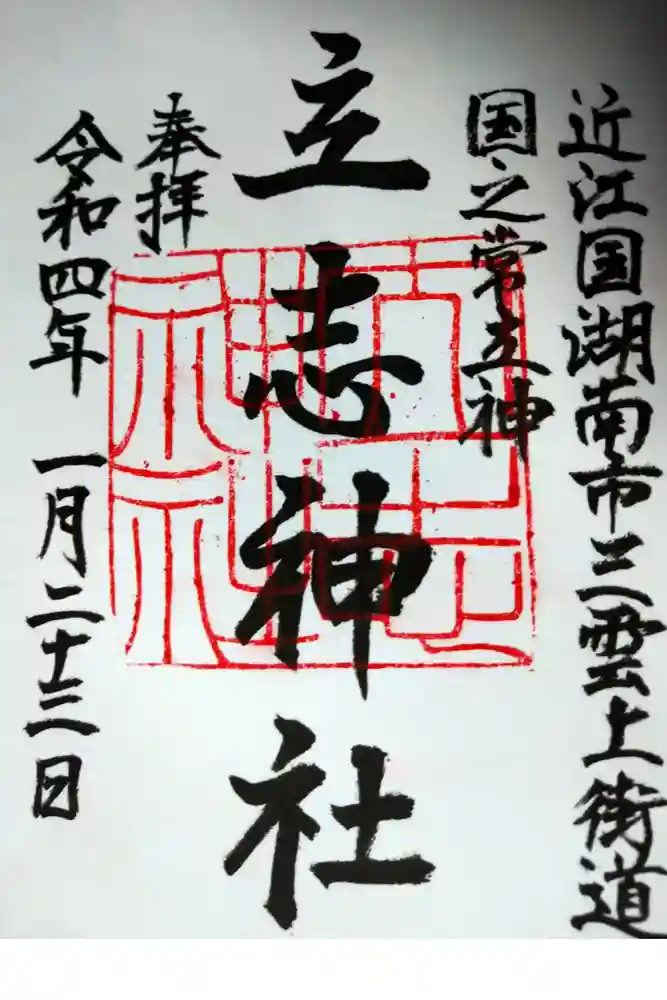 近江国湖南市三雲上街道
国之常立神
立志神社
奉拝
令和四年 一月二十三日
立志神社